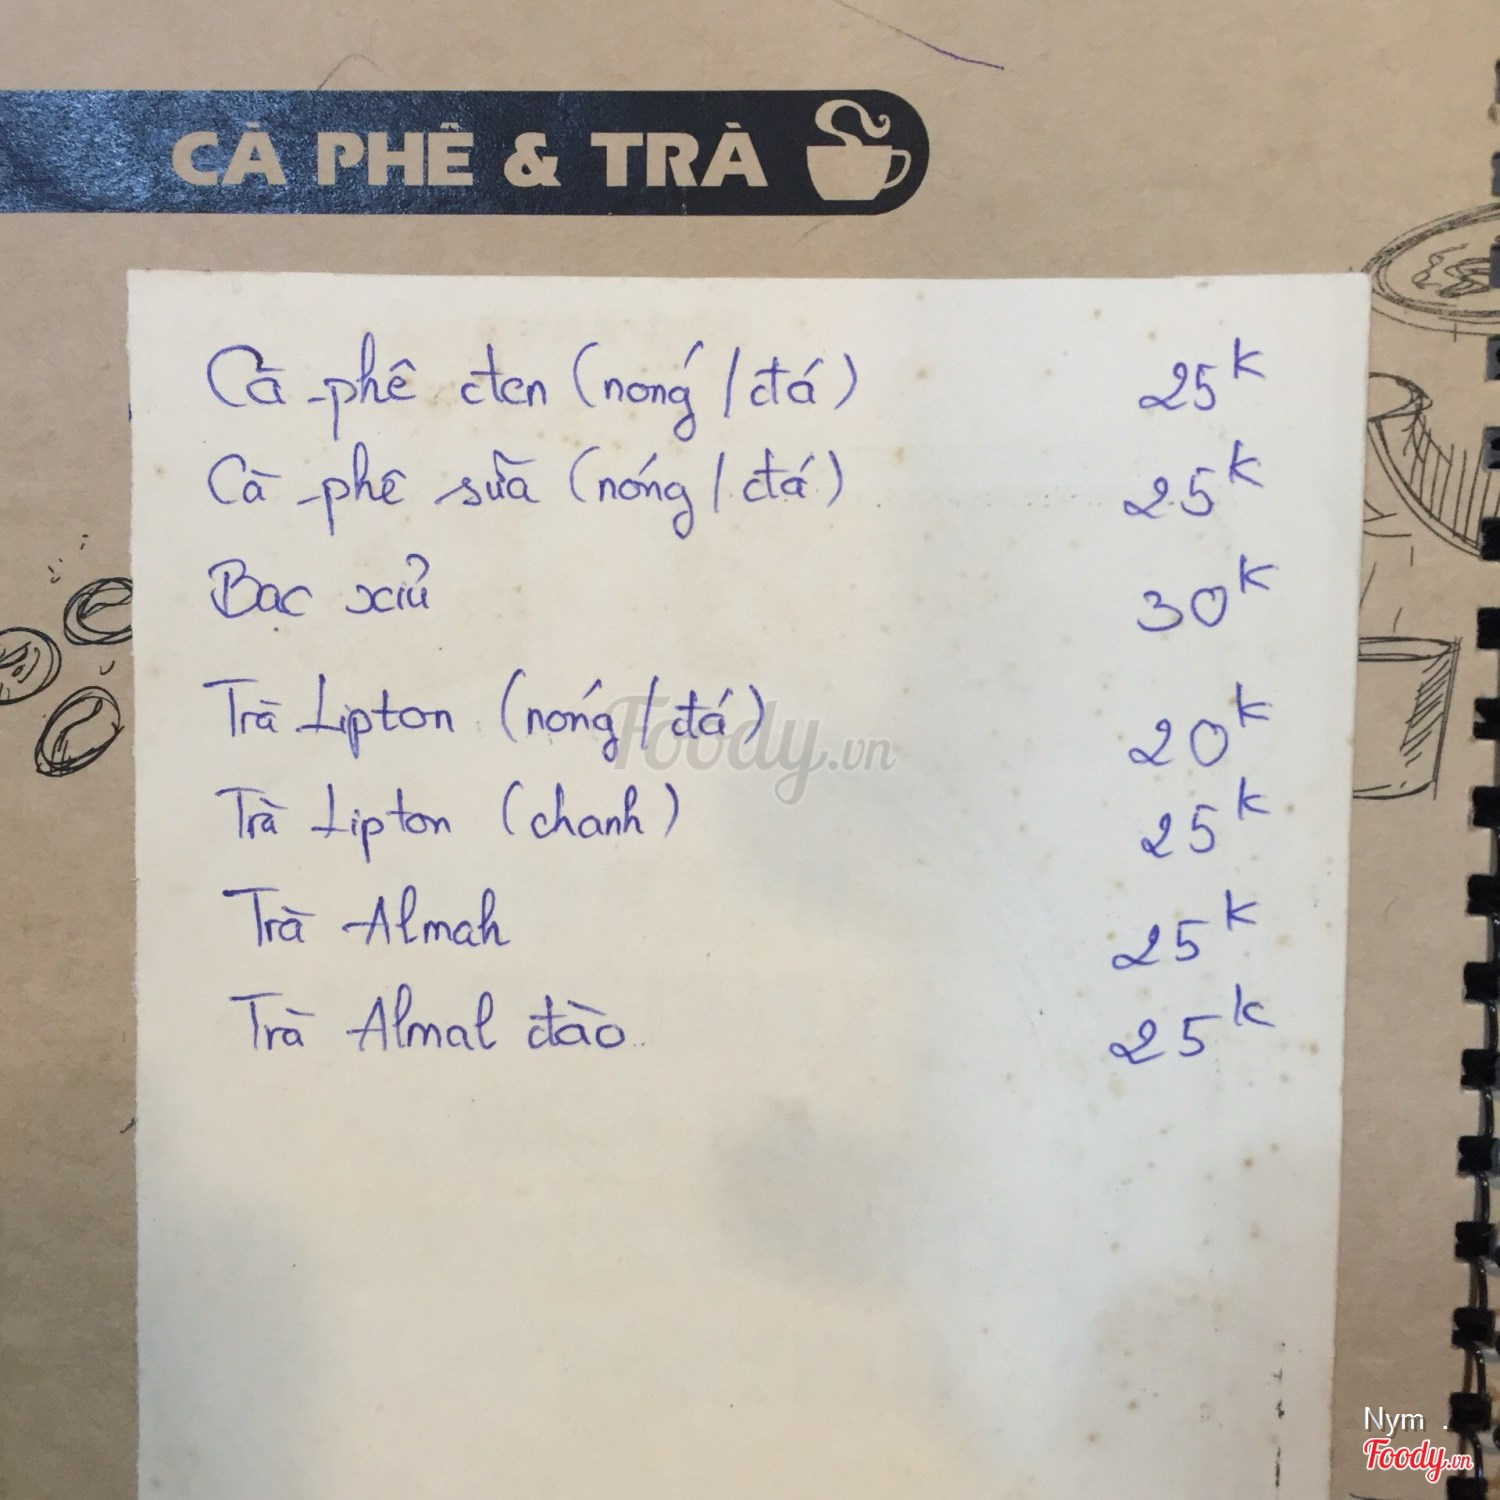 CÀ PHÊ & TRÀ
Cà phê đen (nóng / đá) 25K
Cà phê sữa (nóng / đá) 25K
Bạc xỉu 30K
Trà Lipton (nóng / đá) 20K
Trà Lipton (chanh) 25K
Trà Almah 25K
Trà Almal đào 25K
Foody.vn
Nym .
Foody.vn